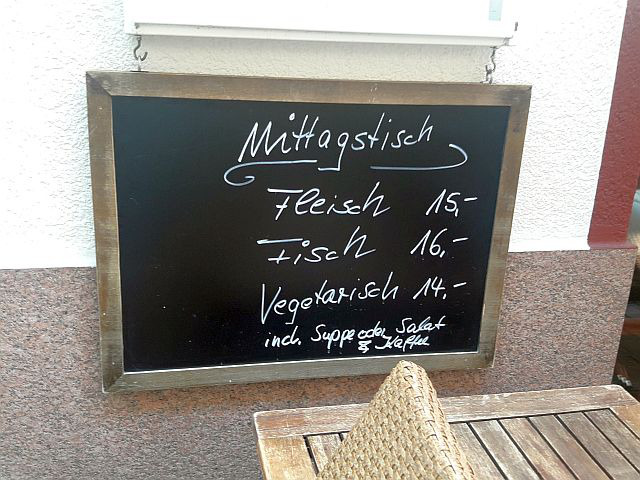 Mittagstisch
Fleisch 15,-
Fisch 16,-
Vegetarisch 14,-
incl. Suppe oder Salat
& Kaffee